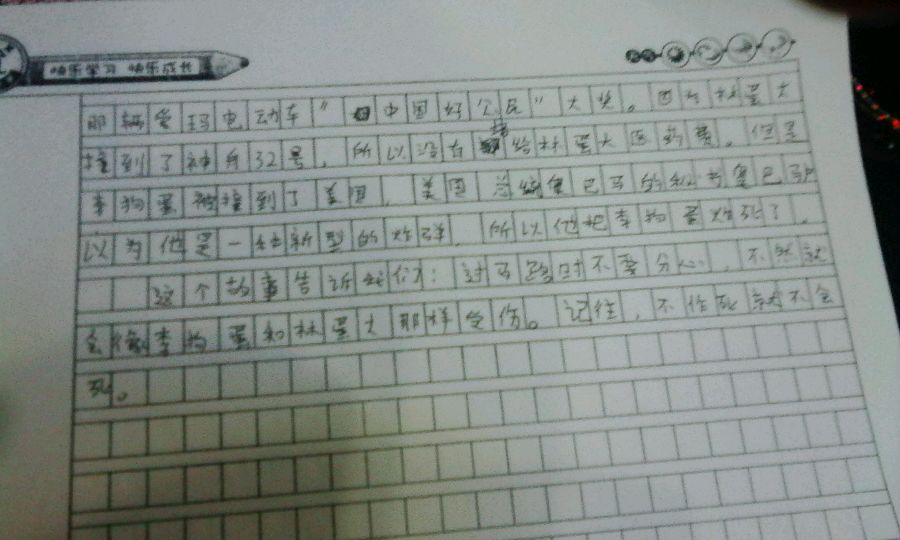 快乐学习 快乐成长
那辆爱玛电动车“中国好公民”大奖。因为林蛋大
撞到了神舟32号,所以没有给林蛋大医药费。但是
李狗蛋被撞到了美国,美国总统奥巴马的私书奥巴驴
以为他是一种新型的炸弹,所以他把李狗蛋炸死了。
这个故事告诉我们:过马路时不要分心,不然就
会像李狗蛋和林蛋大那样受伤。记住,不作死就不会
死。